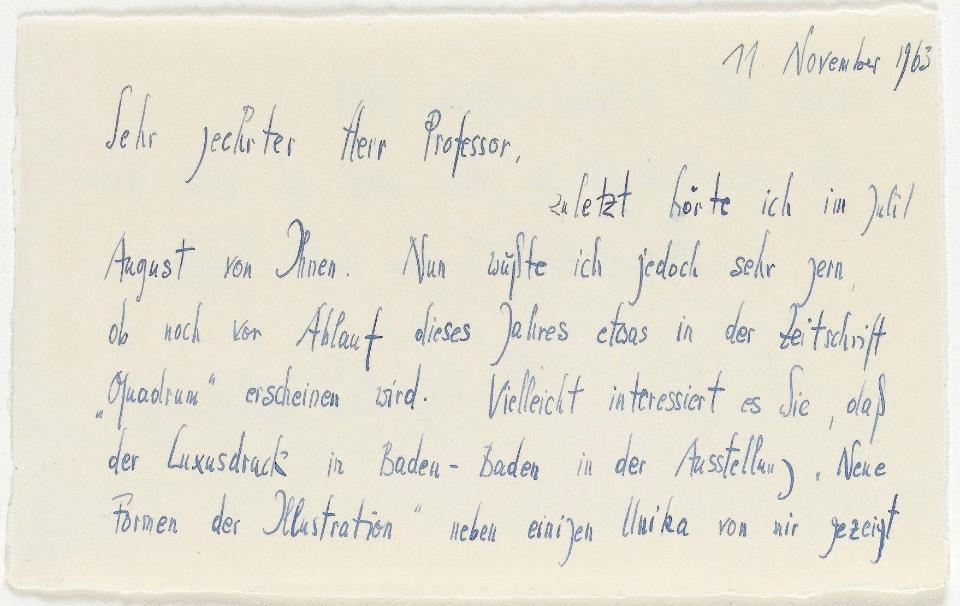 11 November 1963
Sehr geehrter Herr Professor,
zuletzt hörte ich im Juli/
August von Ihnen. Nun wüßte ich jedoch sehr gern,
ob noch vor Ablauf dieses Jahres etwas in der Zeitschrift
„Quadrum“ erscheinen wird. Vielleicht interessiert es Sie, daß
der Luxusdruck in Baden-Baden in der Ausstellung „Neue
Formen der Illustration“ neben einigen Unika von mir gezeigt